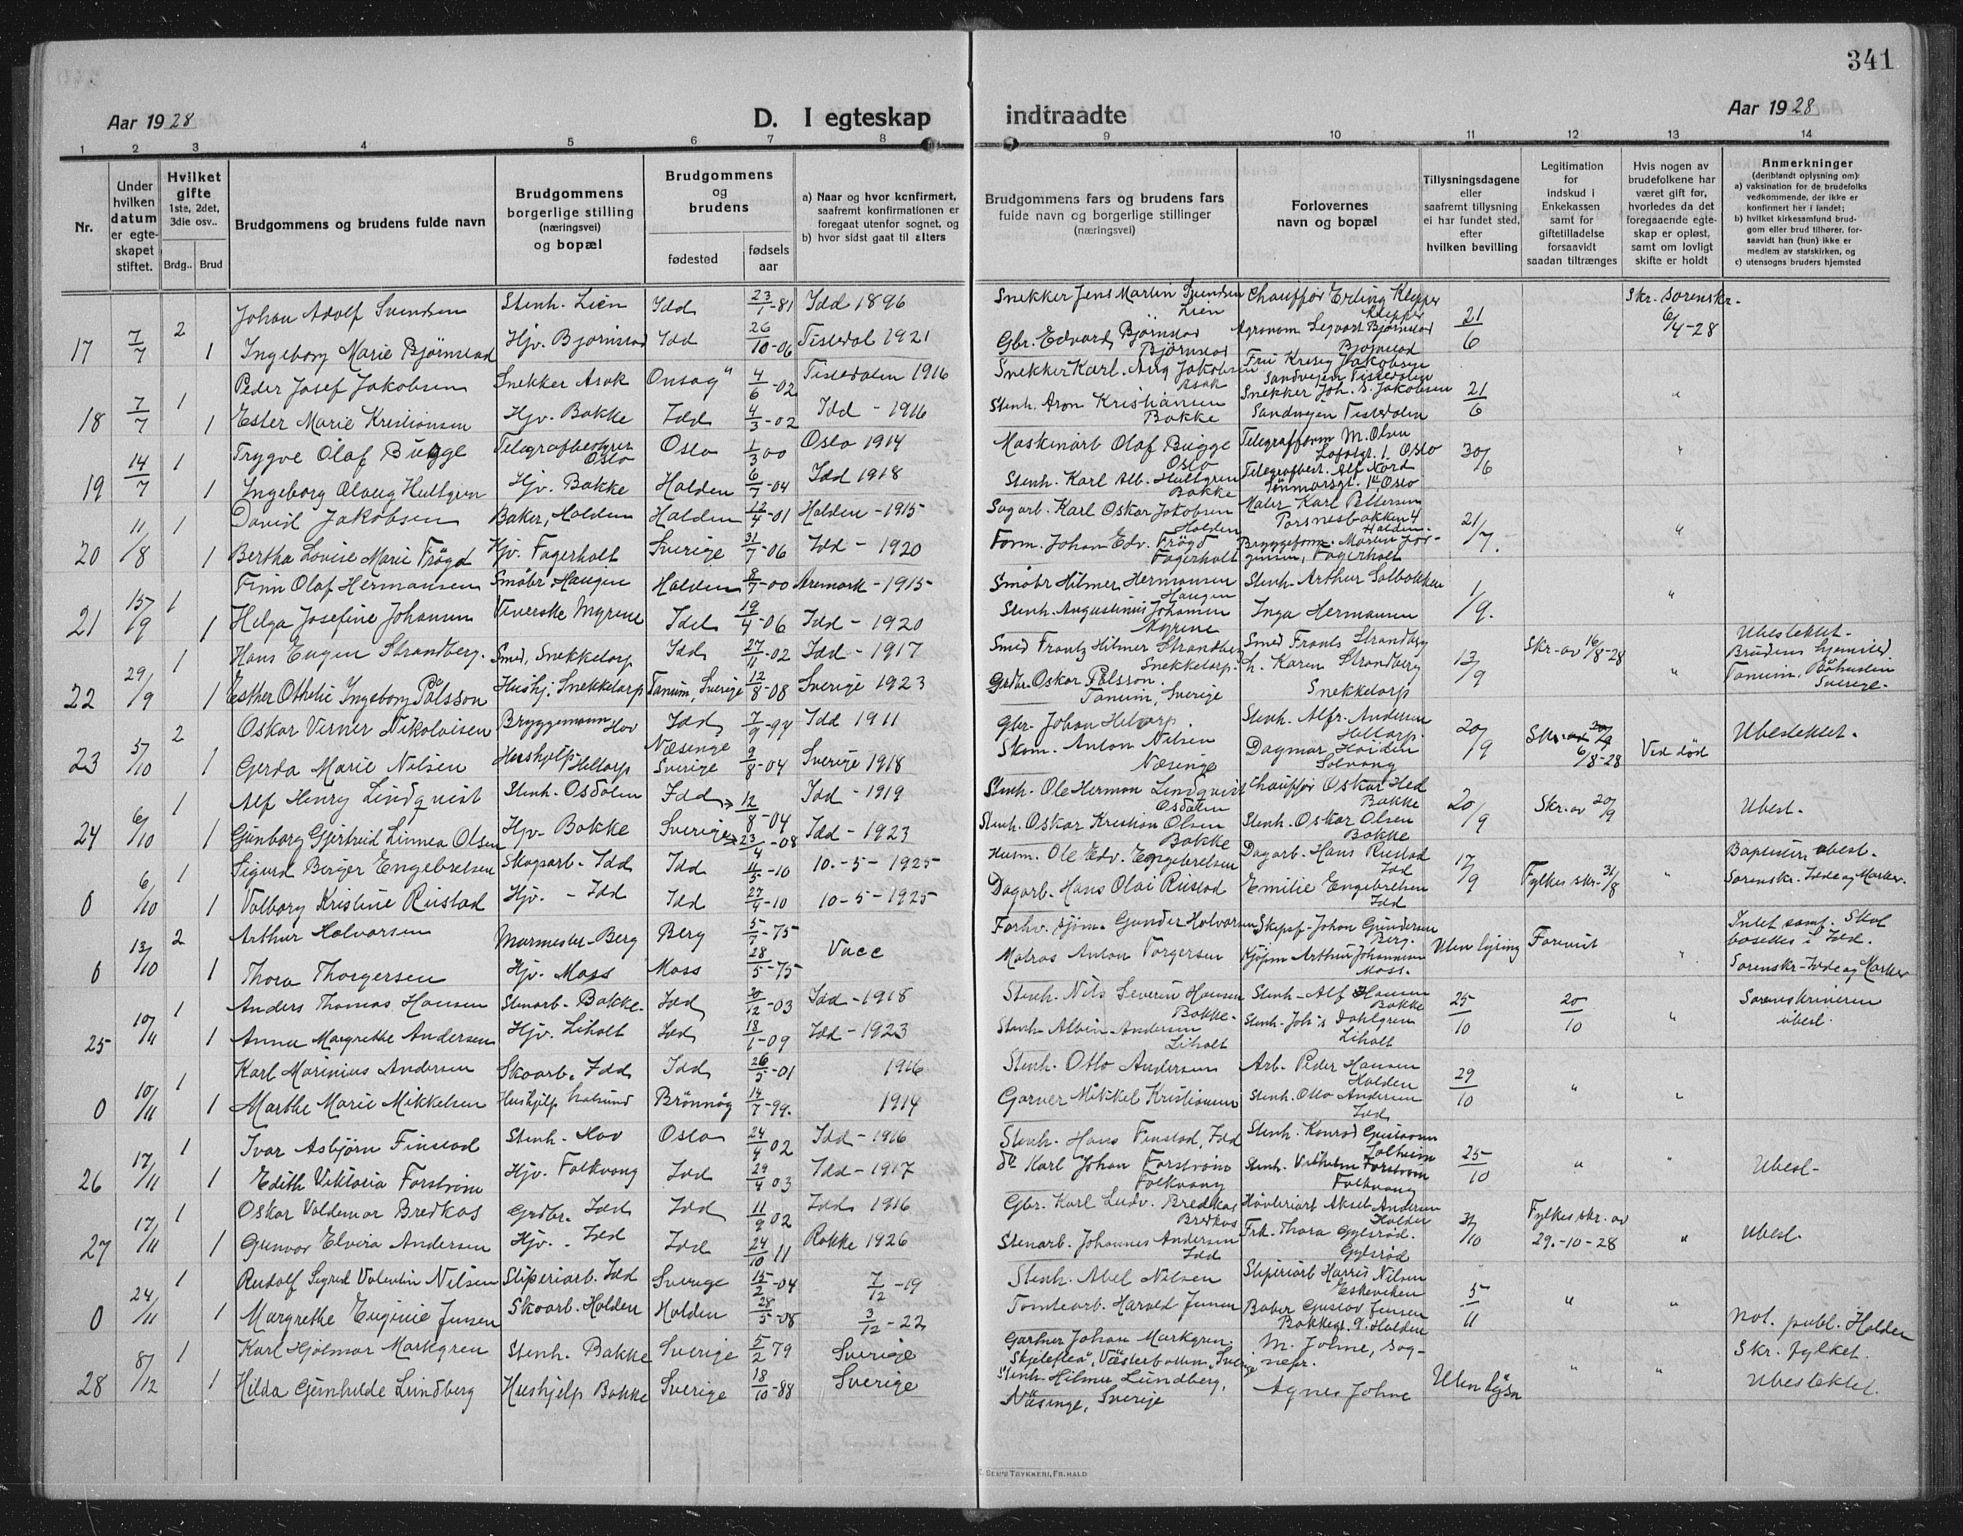 341
Aar 1928 D. I egteskap indtraadte Aar 1928
1 2 3 4 5 6 7 8 9 10 11 12 13 14
Nr.
Under hvilken datum er egteskapet stiftet.
Hvilket gifte 1ste, 2det, 3die osv..
Brdg.. Brud
Brudgommens og brudens fulde navn
Brudgommens borgerlige stilling (næringsvei) og bopæl
Brudgommens og brudens
fødested
fødselsaar
a) Naar og hvor konfirmert, saafremt konfirmationen er foregaat utenfor sognet, og
b) hvor sidst gaat til alters
Brudgommens fars og brudens fars fulde navn og borgerlige stillinger (næringsvei)
Forlovernes navn og bopæl
Tillysningsdagene eller saafremt tillysning ei har fundet sted, efter hvilken bevilling
Legitimation for indskud i Enkekassen samt for giftetilladelse forsaavidt saadan tiltrænges
Hvis nogen av brudefolkene har været gift før, hvorledes da det foregaaende egteskap er opløst, samt om lovligt skifte er holdt
Anmerkninger (deriblandt oplysning om):
a) vaksination for de brudefolks vedkommende, der ikke er konfirmert her i landet;
b) hvilket kirkesamfund brudgom eller brud tilhører, forsaavidt han (hun) ikke er medlem av statskirken, og
c) utensogns bruders hjemsted
Johan Adolf Svendsen Stenh. Lien Idd 23/1-81 Idd 1896 Snekker Jens Martin Svendsen Lien Chauffør Erling Klepper Klepper Skr. sorenskr. 6/4-28
17 7/7 2 1 Ingeborg Marie Bjørnstad Hjv. Bjørnstad Idd 26/10-06 Tistedal 1921 Gbr. Edvard Bjørnstad Bjørnstad Agronom Sigvart Bjørnstad Bjørnstad 21/6
Peder Josef Jakobsen Snekker Asak Onsøy 4/6-02 Tistedalen 1916 Snekker Karl Aug Jakobsen Asak Jakobsen Sandveien Tistedalen
18 7/7 1 1 Ester Marie Kristiansen Hjv. Bakke Idd 4/3-02 Idd - 1916 Stenh. Aron Kristiansen Bakke Snekker Joh. S. Jakobsen Sandveien Tistedalen 21/6 "
Trygve Olaf Bugge Telegrafbestyrer Oslo Oslo 1/3 00 Oslo 1914 Maskinarb Olaf Bugge Oslo Telegrafform M. Olsen Lofotgt. 1 Oslo
19 14/7 1 1 Ingeborg Olaug Hultgren Hjv. Bakke Halden 6/7-04 Idd 1918 Stenh. Karl Alb. Hultgren Bakke Telegrafbest. Alf Nord Oslo 30/6 "
David Jakobsen Baker, Halden Halden 12/4-01 Halden - 1915 Sagarb. Karl Oskar Jakobsen Halden Maler Karl Pettersen Porsnesbakken 4 Halden
20 11/8 1 1 Bertha Lovise Marie Frögd Hjv. Fagerholt Sverige 31/7-06 Idd - 1920 Form. Johan Edv. Frögd Fagerholt Bryggeform. Martin Jørgensen, Fagerholt 21/7. "
Finn Olaf Hermansen Småbr Haugen Halden 8/7-00 Aremark - 1915 Småbr Hilmer Hermansen Haugen Stenh. Arthur Solbakken
21 15/9 1 1 Helga Josefine Johansen Veverske Myrene Idd 19/4-06 Idd - 1920 Stenh. Augustinus Johansen Myrene Inga Hermansen 1/9. "
Hans Eugen Strandberg. Smed, Snekketorp Idd 27/11-02 Idd - 1917 Smed Frantz Hilmer Strandberg Snekketorp. Smed Frants Strandberg
22 29/9 1 1 Esther Othelie Ingeborg Pålsson Hushj. Snekketorp Tanum, Sverige 12/8-08 Sverige 1923 Grdbr. Oskar Pålsson. Tanum, Sverige h. Karen Strandberg Snekketorp 13/9 Skr. av 16/8-28 " Ubeslektet. Brudens hjemsted Tanum, Båhuslen Sverige.
Oskar Verner Nikolaisen Bryggemann Hov Idd 7/9-94 Idd 1911 Gbr. Johan Heltorp. Stenh. Alfr. Andersen Heltorp.
23 5/10 2 1 Gerda Marie Nilsen Hushjelp Heltorp Næsinge Sverige 9/8-04 Sverige 1918 Skom. Anton Nilsen Næsinge Dagmar Haiden Solvang 20/9 Skr. av 20/9 6/8-28 Ved død Ubeslektet.
Alf Henry Lindqvist Stenh. Osdalen Idd 12/8-04 Idd - 1919 Stenh. Ole Herman Lindqvist Osdalen Chauffør Oskar Hed Bakke
24 6/10 1 1 Gunborg Gjertrud Linnea Olsen Hjv. Bakke Sverige 23/4-08 Idd - 1923 Stenh. Oskar Kristian Olsen Bakke Stenh. Oskar Olsen Bakke 20/9 Skr. av 20/9 Ubesl.
Sigurd Birger Engebretsen Skogsarb. Idd Idd 11/5-10 10.-5-1925 Husm. Ole Edv. Engebretsen Dagarb. Hans Rustad Idd
0 6/10 1 1 Valborg Kristine Rustad Hjv. - Idd Idd 27/4-10 10-5-1925 Dagarb. Hans Olai Rustad Emilie Engebretsen Idd 17/9 Fylkes skr. 31/8 " Baptister ubesl. Sorenskr. Idde og Marker.
Arthur Halvorsen Murmester Berg Berg 5/7-75 Vacc Forhv. sjøm. Gunder Halvorsen Johan Gundersen Berg.
0 13/10 2 1 Thora Thorgersen Hjv. Moss Moss 28/5-75 Matros Anton Torgersen Kjøpm Arthur Johannesen Moss. Uten lysing Forevist " Intet samf. Skal bosettes i Idd. Sorenskr. Idde og Marker
Anders Thomas Hansen Stenarb. Bakke. Idd 20/12-03 Idd - 1918 Stenh. Nils Severin Hansen Bakke. Stenh. Alf Hansen Bakke
25 10/11 1 1 Anna Margrethe Andersen Hjv. Liholt Idd 18/1-09 Idd - 1923 Stenh. Albin Andersen Liholt Stenh. Joh's Dahlgren Liholt 25/10 20/10 " Sorenskriveren ubesl.
Karl Marinius Andersen Skoarb. Idd Idd 26/5-01 1916 Stenh. Otto Andersen Arb. Peder Hansen Halden
0 10/11 1 1 Marthe Marie Mikkelsen Hushjelp Brönnög 14/7-99. 1914 Garver Mikkel Kristiansen Stenh. Otto Andersen Idd 29/10 " "
Ivar Asbjørn Finstad Stenh. Hov Oslo 24/4 02 Idd - 1916 Stenh. Hans Finstad, Idd Stenh. Konrad Gustavsen Solheim
26 17/11 1 1 Edith Viktoria Forstrøm Hjv. Folkvang Idd 29/4 03 Idd - 1917 do Karl Johan Forstrøm Folkvang Stenh. Vilhelm Forstrøm Folkvang 25/10 " " Ubesl.
Oskar Valdemar Bredkas Grdbr. Idd Idd 11/9 02 Idd 1916 Gbr. Karl Ludv. Bredkas Bredkas Høvleriarb Aksel Andersen Halden
27 17/11 1 1 Gunvor Elvira Andersen Hjv. - Idd Idd 24/10 11 Rokke 1926 Stenarb. Johannes Andersen Idd Frk. Thora Gylsrød. Gylsrød 31/10 Fylkes skr. av 29.-10-28 " Ubesl.
Rudolf Sigurd Valentin Nilsen Sliperiarb. Idd Sverige 15/2-04 7/12-19 Stenh. Abel Nilsen Sliperiarb Harris Nilsen Eskeviken
0 24/11 1 1 Margrethe Euginie Jensen Skoarb. Halden Halden 28/5-08 3/12-22 Tomtearb. Harald Jensen Baker Gustav Jensen Bakkegt. 9. Halden 5/11 " " Not. publ. Halden
Karl Hjalmar Markgren Stenh. Bakke Sverige 5/2 79 Sverige Gartner Johan Markgren. Skjelefteå, Västerbotten, Sverige M. Johne, sogneprr. Skr. fylket.
28 8/12 1 1 Hilda Gunhilde Lundberg Hushjelp Bakke Sverige 18/10-88 Sverige Stenh. Hilmer Lundberg, Näsinge, Sverige Agnes Johne Uten lysn " " Ubeslektet.
TRYKKERI, FR.HALD